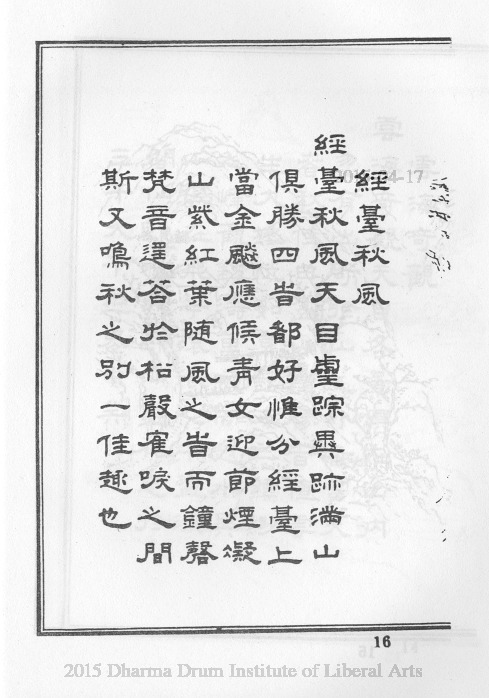 經臺秋風
經臺秋風天目靈踪異跡滿山
俱勝四旹都好惟分經臺上
當金飈應候青女迎節煙凝
山紫紅葉随風之旹而鐘磬
梵音遝荅於松聲寉唳之間
斯又鳴秋之別一佳趣也
16
2015 Dharma Drum Institute of Liberal Arts